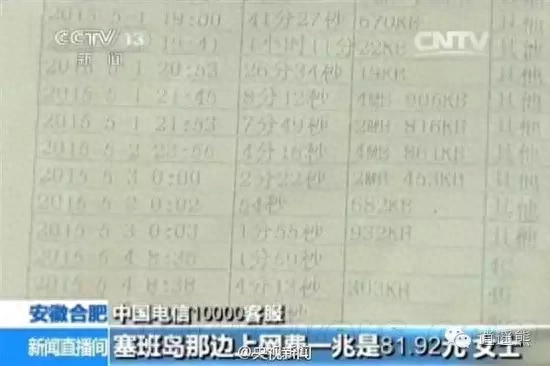 2015 5 1 19:00 41分27秒 670KB 其他
CCTV 13 新闻
CNTV
1小时11分 22KB 其他
2015 5 1 20:53 26分34秒 19KB 其他
2015 5 1 21:45 8分12秒 4MB 906KB 其他
2015 5 1 21:53 7分49秒 2MB 816KB 其他
2015 5 2 23:56 4分16秒 4MB 861KB 其他
2015 5 3 0:00 2分22秒 2MB 453KB 其他
2015 5 2 0:02 54秒 682KB 其他
2015 5 3 0:03 1分55秒 932KB 其他
2015 5 4 8:36 1分59秒 4G
2015 5 4 8:38 4分13秒 303KB 4G
安徽合肥 中国电信10000客服
新闻直播间 塞班岛那边上网费一兆是81.92元 女士
@央视新闻
逍遥熊